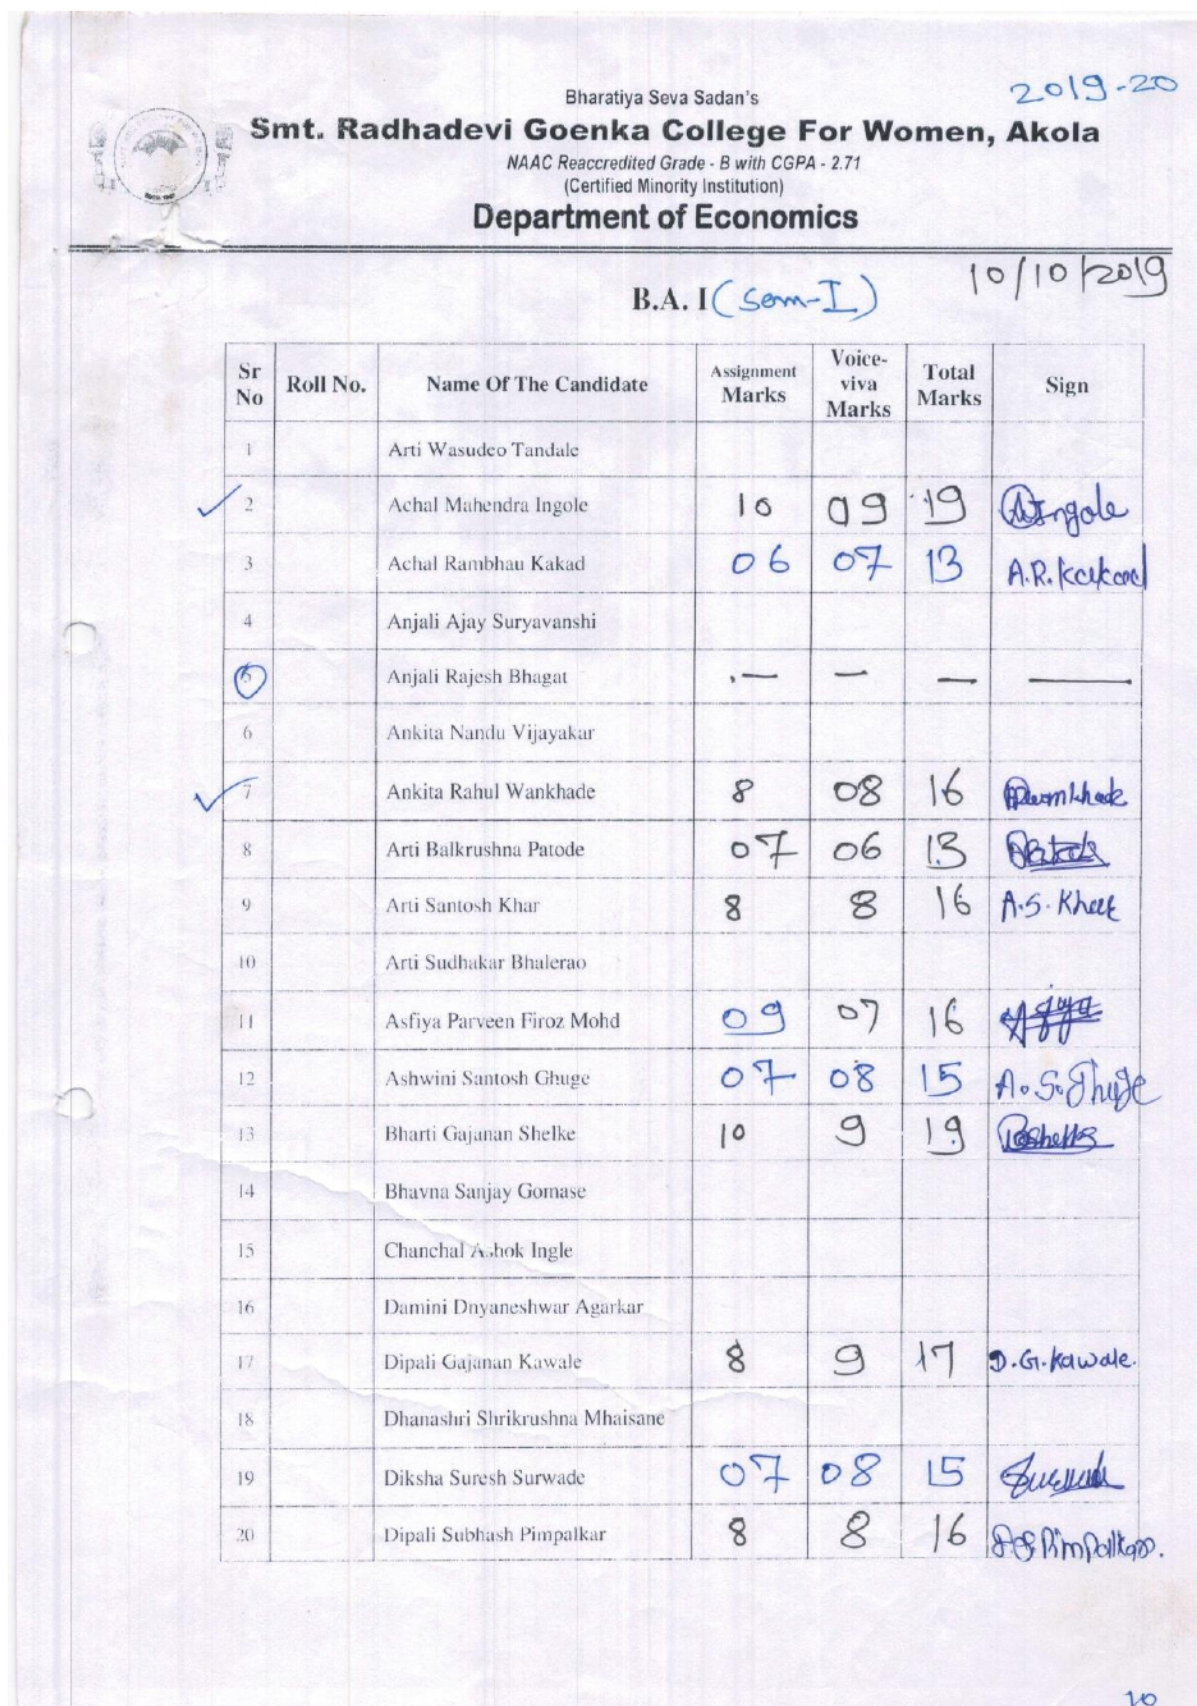 2019-20
Bharatiya Seva Sadan's
Smt. Radhadevi Goenka College For Women, Akola
NAAC Reaccredited Grade - B with CGPA - 2.71
(Certified Minority Institution)
Department of Economics
10/10/2019
B.A. I (Sem-I)
Sr No Roll No. Name Of The Candidate Assignment Marks Voice-viva Marks Total Marks Sign
1 Arti Wasudeo Tandale
2 Achal Mahendra Ingole 10 09 19 Ingole
3 Achal Rambhau Kakad 06 07 13 A.R. Kakad
4 Anjali Ajay Suryavanshi
5 Anjali Rajesh Bhagat — — — —
6 Ankita Nandu Vijayakar
7 Ankita Rahul Wankhade 8 08 16
8 Arti Balkrushna Patode 07 06 13
9 Arti Santosh Khar 8 8 16 A.S. Khar
10 Arti Sudhakar Bhalerao
11 Asfiya Parveen Firoz Mohd 09 07 16
12 Ashwini Santosh Ghuge 07 08 15 A.S. Ghuge
13 Bharti Gajanan Shelke 10 9 19
14 Bhavna Sanjay Gomase
15 Chanchal Ashok Ingle
16 Damini Dnyaneshwar Agarkar
17 Dipali Gajanan Kawale 8 9 17 D.G. Kawale.
18 Dhanashri Shrikrushna Mhaisane
19 Diksha Suresh Surwade 07 08 15
20 Dipali Subhash Pimpalkar 8 8 16